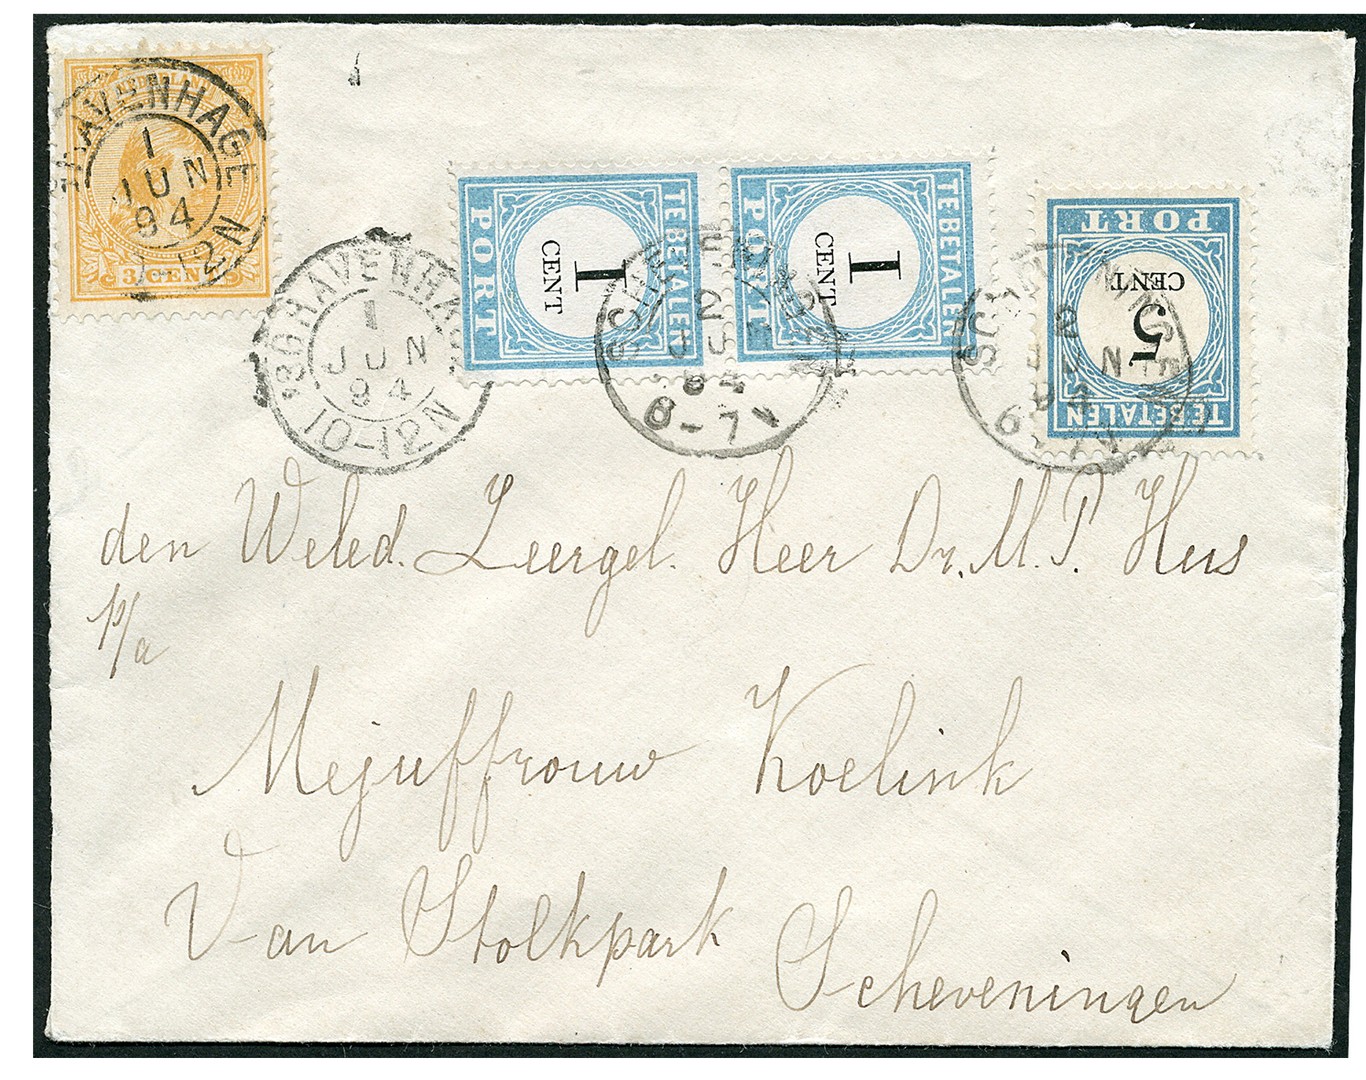 'SGRAVENHAGE
1
JUN
94
10-12N
3 CENT
'SGRAVENHAGE
1
JUN
94
10-12N
TE BETALEN
1
CENT
PORT
TE BETALEN
1
CENT
PORT
SCHEVENINGEN
2
JUN
94
6-7V
PORT
5
CENT
TE BETALEN
SCHEVENINGEN
2
JUN
94
6-7V
den Weled. Leergel. Heer Dr. M. P. Hus
p/a
Mejuffrouw Koelink
Van Stolkpark Scheveningen